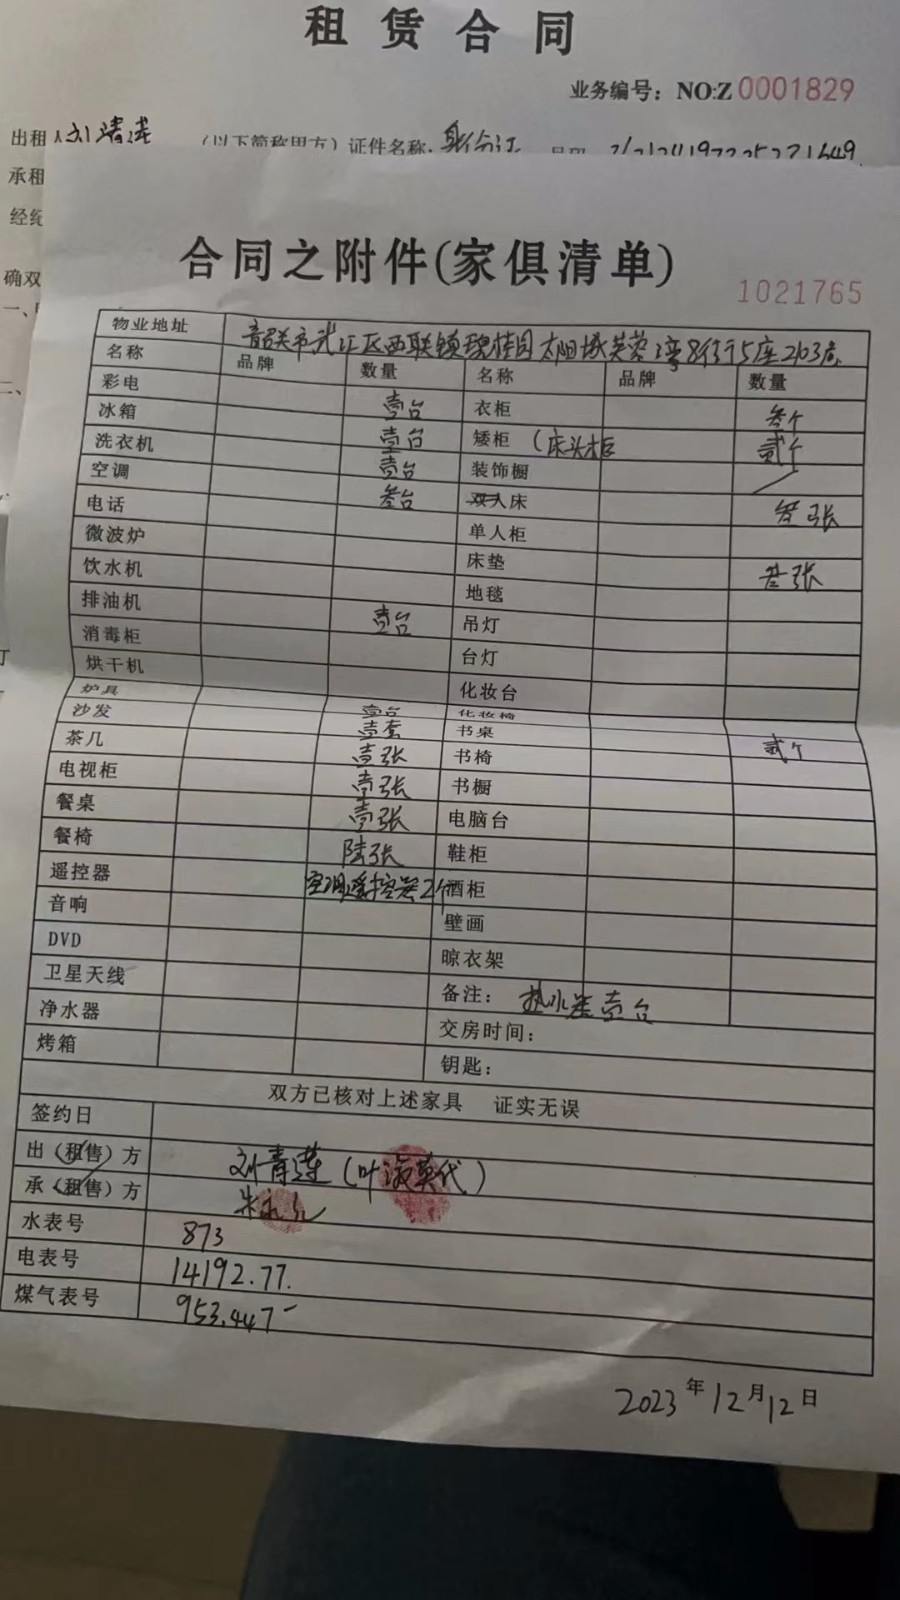 租赁合同
业务编号：NO:Z 0001829
出租 （以下简称甲方）证件名称： 身份证
承租
经纪
确双
合同之附件(家俱清单)
1021765
物业地址 韶关市武江区西联镇碧桂园太阳城芙蓉湾8街5座2103房
名称 品牌 数量 名称 品牌 数量
彩电 壹台 衣柜 叁个
冰箱 壹台 矮柜 (床头柜 贰个
洗衣机 壹台 装饰橱
空调 叁台 双人床 叁张
电话 单人柜
微波炉 床垫 叁张
饮水机 地毯
排油机 壹台 吊灯
消毒柜 台灯
烘干机 化妆台
炉具 壹台 化妆椅
沙发 壹套 书桌 贰个
茶几 壹张 书椅
电视柜 壹张 书橱
餐桌 壹张 电脑台
餐椅 陆张 鞋柜
遥控器 空调遥控器2个 酒柜
音响 壁画
DVD 晾衣架
卫星天线 备注： 热水器壹台
净水器 交房时间：
烤箱 钥匙：
双方已核对上述家具 证实无误
签约日
出（租售）方 刘青莲(叶 英代)
承（租售）方 朱
水表号 873
电表号 14192.77.
煤气表号 953.447
2023年12月12日